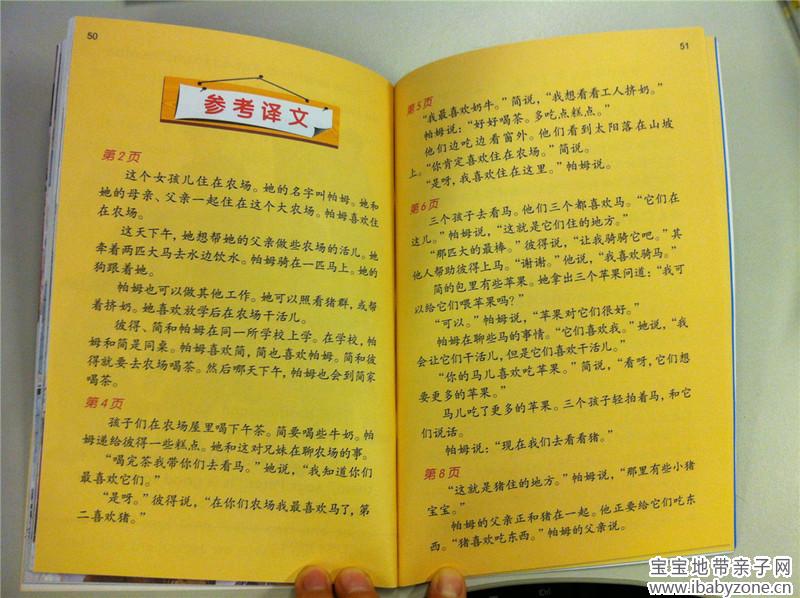 50
参考译文
第2页
这个女孩儿住在农场。她的名字叫帕姆。她和
她的母亲、父亲一起住在这个大农场。帕姆喜欢住
在农场。
这天下午,她想帮她的父亲做些农场的活儿。她
牵着两匹大马去水边饮水。帕姆骑在一匹马上。她的
狗跟着她。
帕姆也可以做其他工作。她可以照看猪群,或帮
着挤奶。她喜欢放学后在农场干活儿。
彼得、简和帕姆在同一所学校上学。在学校,帕
姆和简是同桌。帕姆喜欢简,简也喜欢帕姆。简和彼
得就要去农场喝茶。然后哪天下午,帕姆也会到简家
喝茶。
第4页
孩子们在农场屋里喝下午茶。简要喝些牛奶。帕
姆递给彼得一些糕点。她和这对兄妹在聊农场的事。
“喝完茶我带你们去看马。”她说,“我知道你们
最喜欢它们。”
“是呀。”彼得说,“在你们农场我最喜欢马了,第
二喜欢猪。”
51
第5页
“我最喜欢奶牛。”简说,“我想看看工人挤奶。”
帕姆说:“好好喝茶。多吃点糕点。”
他们边吃边看窗外。他们看到太阳落在山坡
上。“你肯定喜欢住在农场。”简说。
“是呀,我喜欢住在这里。”帕姆说。
第6页
三个孩子去看马。他们三个都喜欢马。“它们在
这儿。”帕姆说,“这就是它们住的地方。”
“那匹大的最棒。”彼得说,“让我骑骑它吧。”其
他人帮助彼得上马。“谢谢。”他说,“我喜欢骑马。”
简的包里有些苹果。她拿出三个苹果问道:“我可
以给它们喂苹果吗?”
“可以。”帕姆说,“苹果对它们很好。”
帕姆在聊些马的事情。“它们喜欢我。”她说,“我
会让它们干活儿,但是它们喜欢干活儿。”
“你的马儿喜欢吃苹果。”简说,“看呀,它们想
要更多的苹果。”
马儿吃了更多的苹果。三个孩子轻拍着马,和它
们说话。
帕姆说:“现在我们去看看猪。”
第8页
“这就是猪住的地方。”帕姆说,“那里有些小猪
宝宝。”
帕姆的父亲正和猪在一起。他正要给它们吃东
西。“猪喜欢吃东西。”帕姆的父亲说。
宝宝地带亲子网
www.ibabyzone.cn